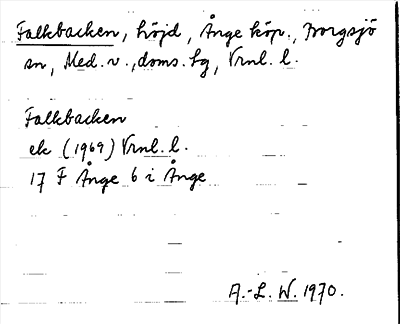 Falkbacken, höjd, Ånge köp., Borgsjö
sn, Med. v., doms. hg, Vrnl. l.
Falkbacken
ek (1969) Vrnl. l.
17 F Ånge 6 i Ånge
A.-L. W. 1970.